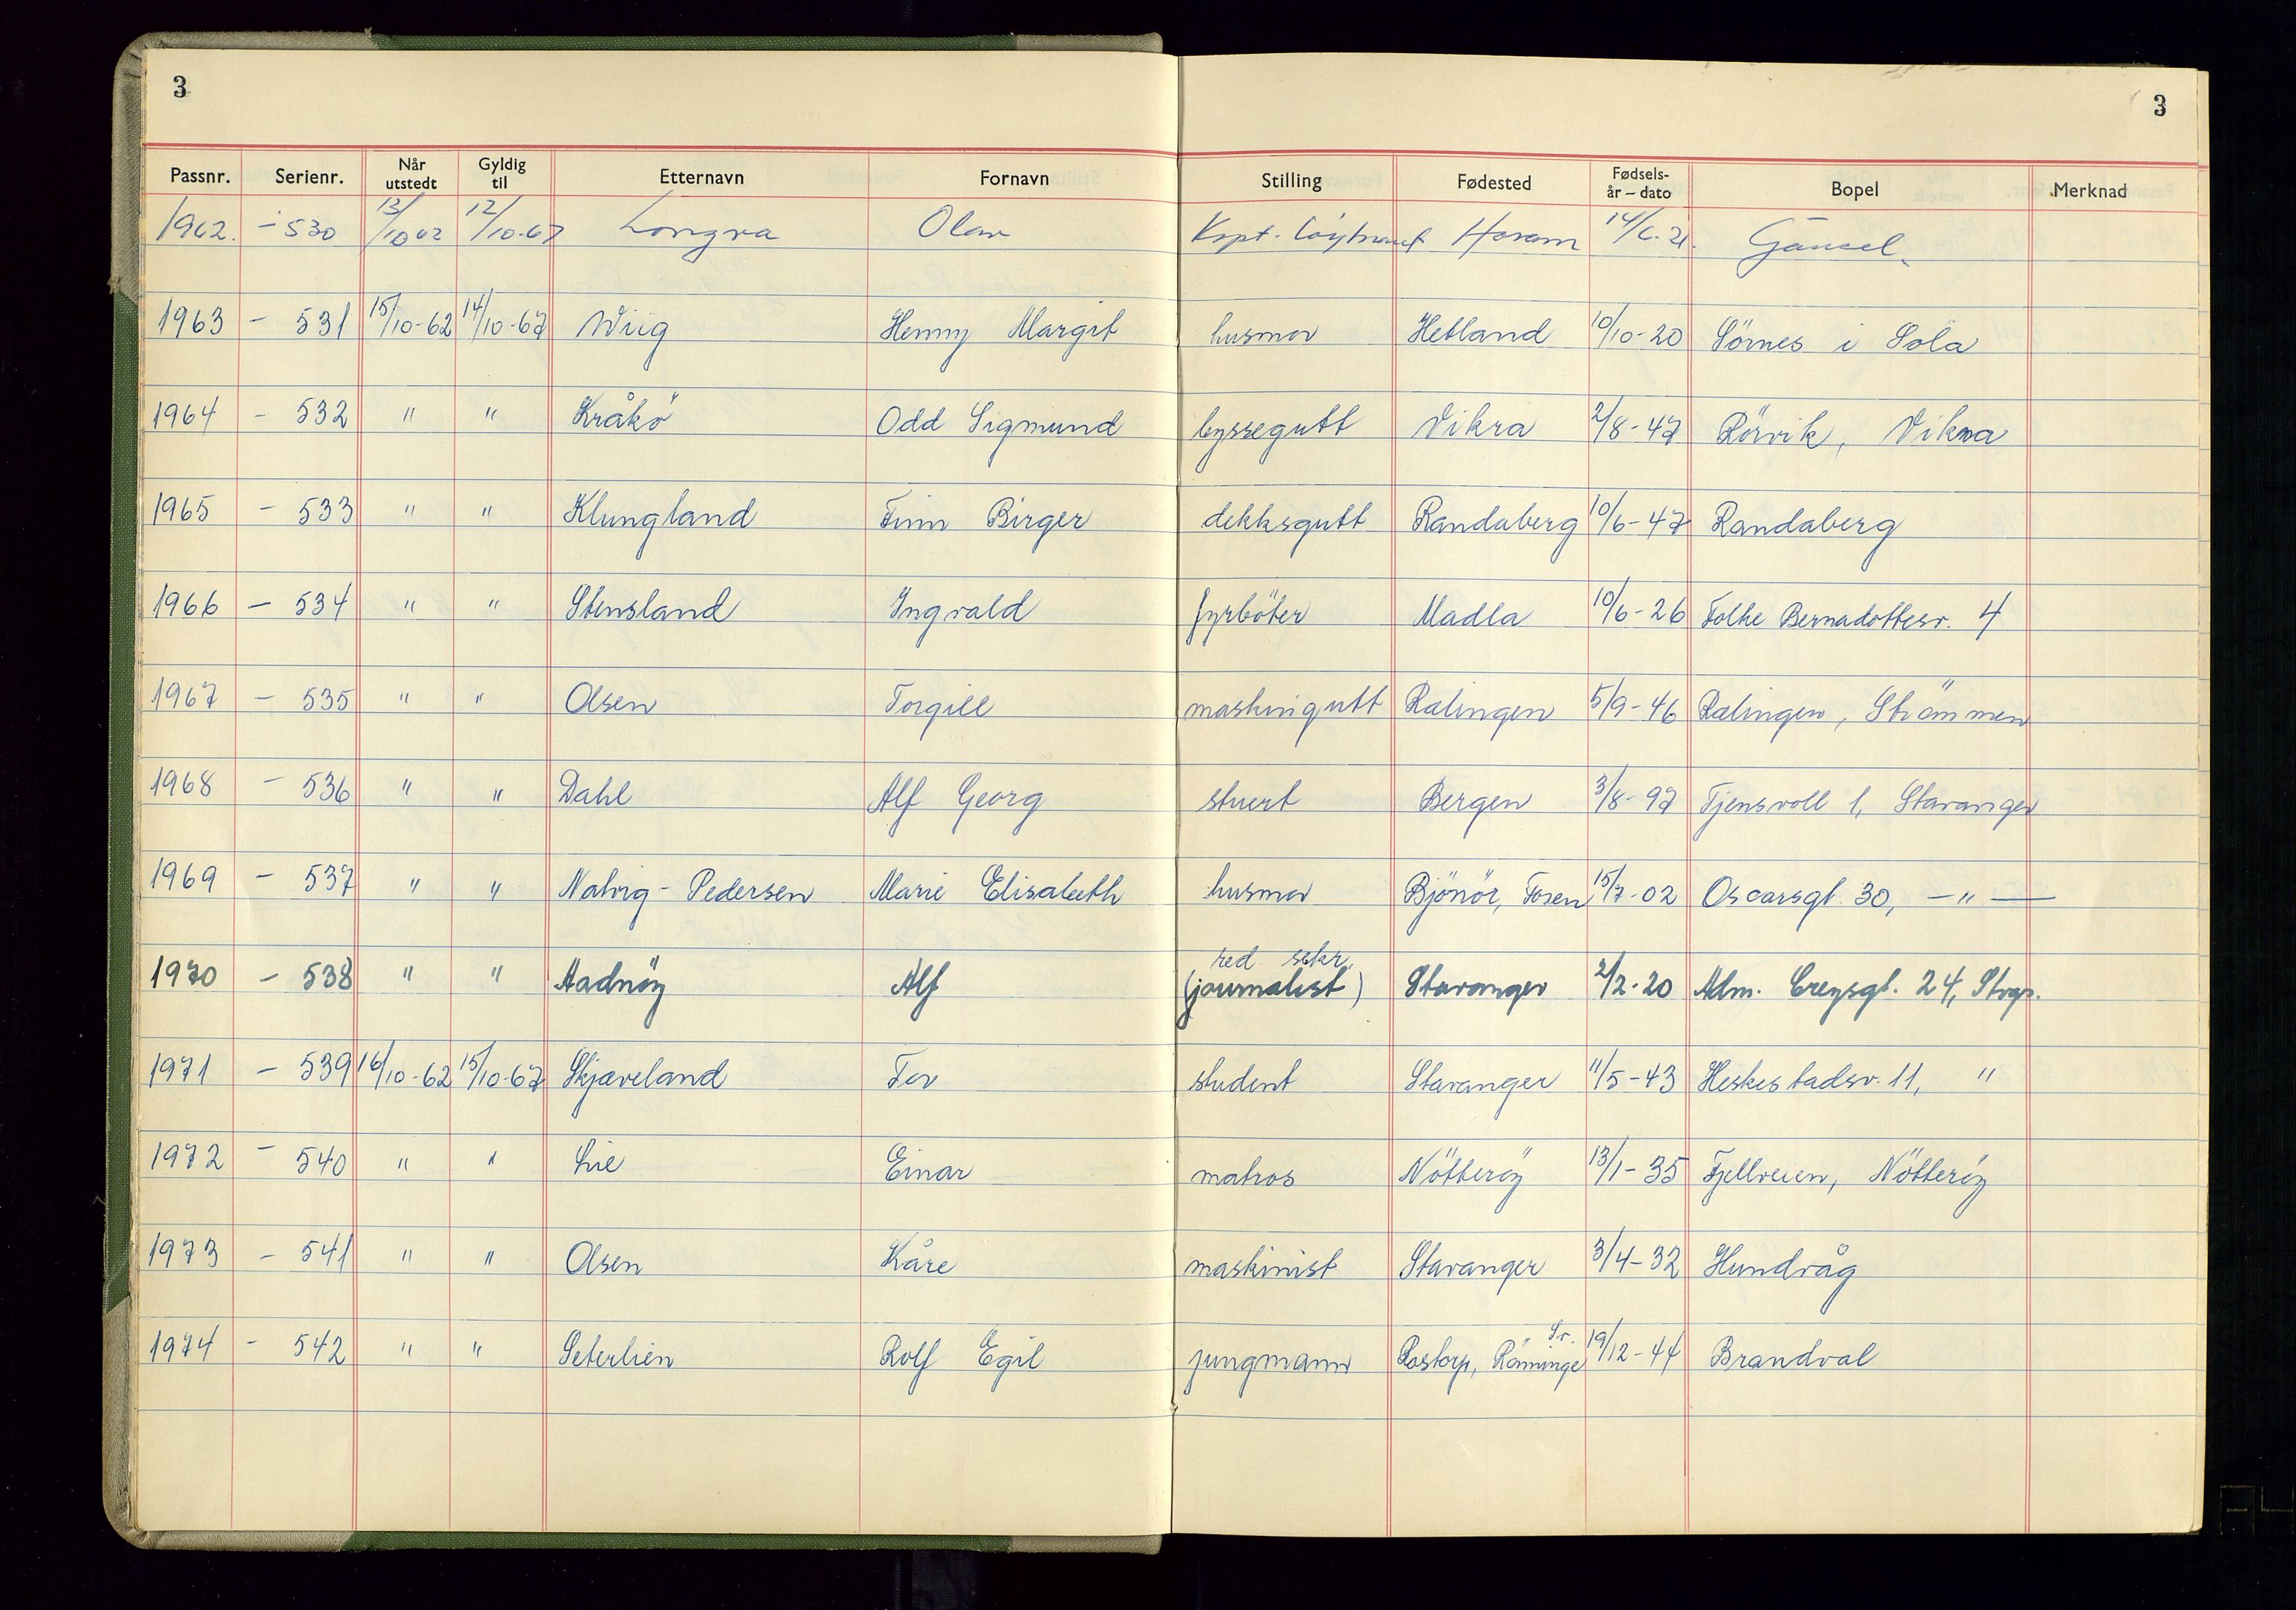 3 3
Passnr. Serienr. Når utstedt Gyldig til Etternavn Fornavn Stilling Fødested Fødsels- år – dato Bopel Merknad
1962. - 530 13/10 62 12/10-67 Longva Olav Kapt. löytnant Haram 14/6-21. Gausel.
1963 - 531 15/10-62 14/10-67 Wiig Henny Margit husmor Hetland 10/10-20 Sörnes i Sola
1964 - 532 " " Kråkö Odd Sigmund byssegutt Vikna 2/8-47 Rörvik, Vikna
1965 - 533 " " Klungland Finn Birger dekksgutt Randaberg 10/6-47 Randaberg
1966 - 534 " " Stensland Ingvald fyrböter Madla 10/6-26 Folke Bernadottesv. 4
1967 - 535 " " Olsen Torgill maskingutt Rælingen 5/9-46 Rælingen, Strömmen
1968 - 536 " " Dahl Alf Georg stuert Bergen 3/8-97 Tjensvoll 1, Stavanger
1969 - 537 " " Natvig-Pedersen Marie Elisabeth husmor Bjönör, Fosen 15/7-02 Oscarsgt. 30, — " —
1970 - 538 " " Aadnöy Alf red. sekr. (journalist) Stavanger 2/2-20 Adm. Creysgt. 24, Stvgr.
1971 - 539 16/10-62 15/10-67 Skjæveland Tor student Stavanger 11/5-43 Heskestadsv. 11, "
1972 - 540 " " Lie Einar matros Nötteröy 13/1-35 Fjellveien, Nötteröy
1973 - 541 " " Olsen Kåre maskinist Stavanger 3/4-32 Hundvåg
1974 - 542 " " Seterlien Rolf Egil jungmann Rostorp, Rönninge Sv. 19/12-44 Brandval